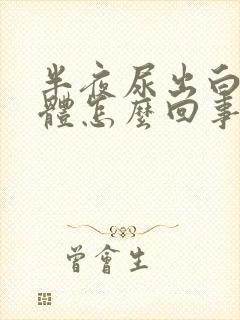 半夜尿出白
體怎麼回事
曾會生